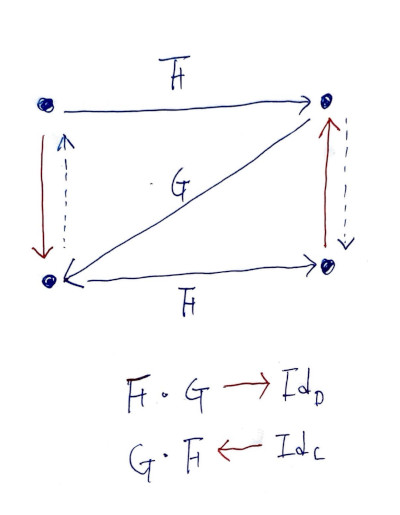 F
G
F
F · G → Id_D
G · F ← Id_C